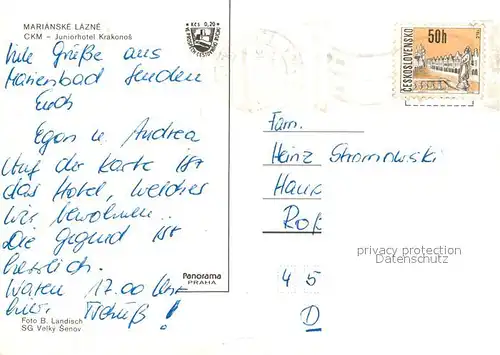 MARIÁNSKÉ LÁZNĚ
CKM – Juniorhotel Krakonoš
Kčs 0,20
Viele Grüße aus
Marienbad senden
Euch
Egon u. Andrea
Auf der Karte ist
das Hotel, welches
wir bewohnen..
Die Gegend ist
herrlich.
Waren 17.00 Uhr
hier. Tschüß!
Foto B. Landisch
SG Velký Šenov
Panorama
PRAHA
ČESKOSLOVENSKO
50h
Fam.
Heinz Stromowski
Haus
Roß
privacy protection
Datenschutz
4 5
D